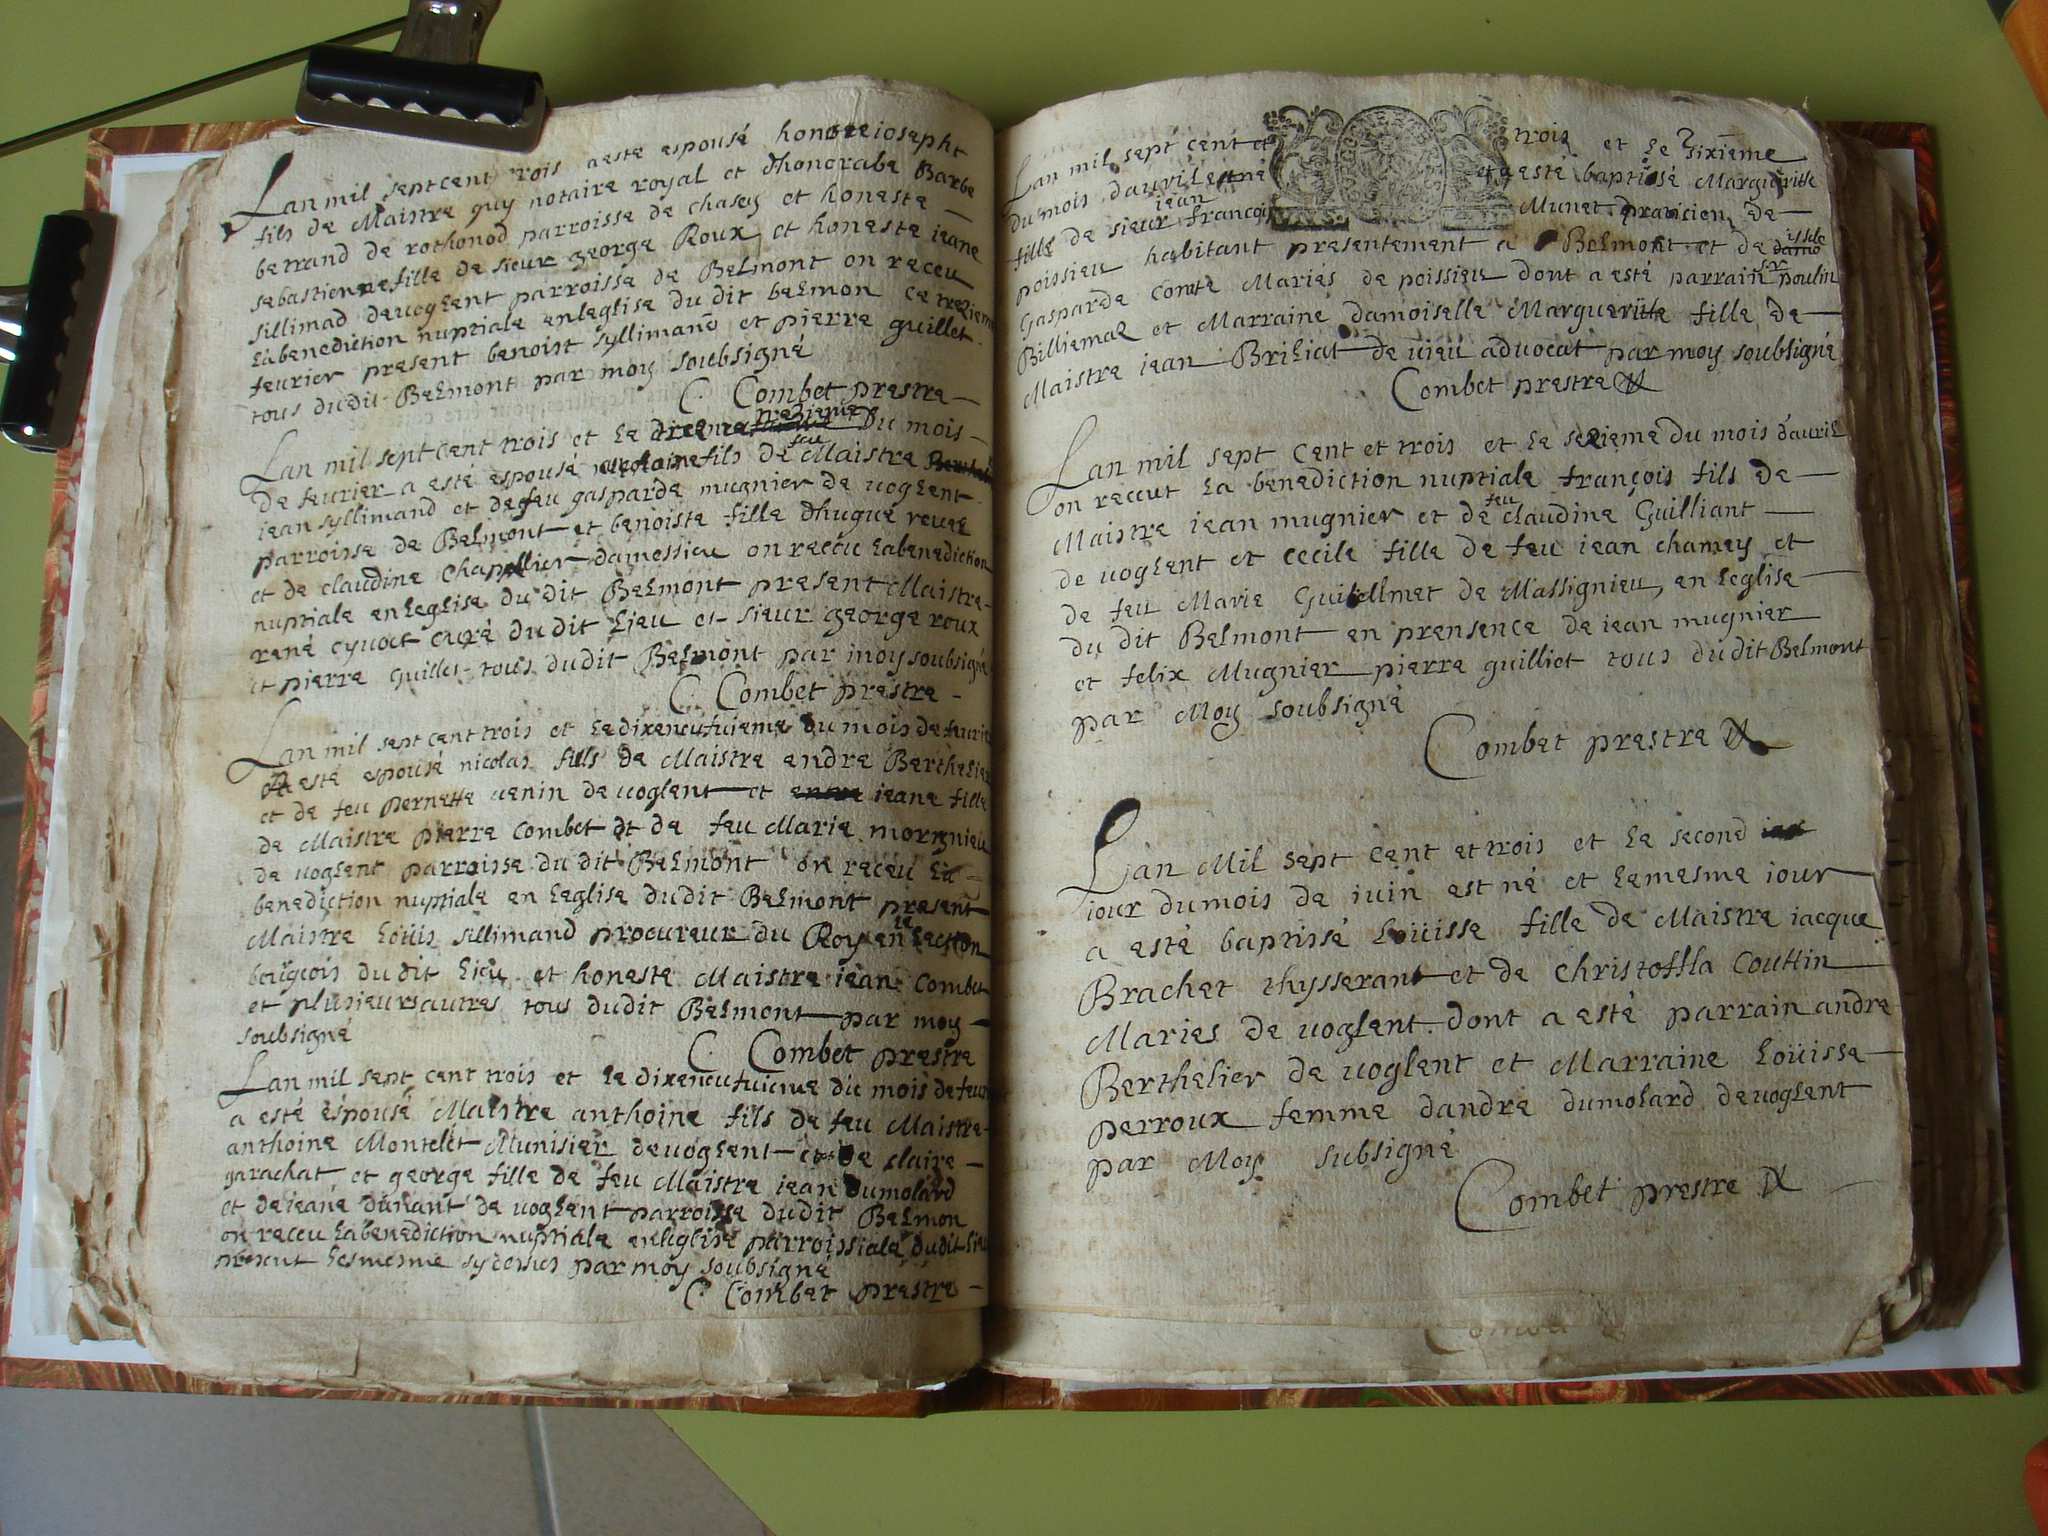 Lan mil sept cent trois a esté espousé honore iosepht
fils de Maistre guy notaire royal et dhonorabe Barbe
betrand de rothonod parroisse de chasey et honeste
sebastienne fille de sieur george Roux et honeste ieane
sillimad devoglent parroisse de Belmont on receu
la benediction nuptiale en leglise du dit belmon ce trezieme
feurier present benoist syllimand et pierre guillet
tous dudit Belmont par moy soubsigné
C Combet prestre
Lan mil sept cent trois et le trezieme du mois
de feurier a esté espousé fils de feu Maistre
iean syllimand et de feu gasparde mugnier de voglent
parroisse de Belmont et benoiste fille dhugue
et de claudine Chapellier damessieu on receu la benediction
nuptiale en leglise du dit Belmont present Maistre
rené cyvoct curé du dit lieu et sieur george roux
et pierre guillet tous dudit Belmont par moy soubsigné
C Combet prestre
Lan mil sept cent trois et le dixeneufuieme du mois de feurier
A esté espousé nicolas fils de Maistre andre Berthelier
et de feu pernette venin de voglent et ieane fille
de Maistre pierre Combet et de feu Marie morignieu
de voglent parroisse du dit Belmont on receu la
benediction nuptiale en leglise dudit Belmont present
Maistre Loüis sillimand procureur du Roy en lection
bougeois du dit lieu et honeste Maistre iean Combet
et plusieurs autres tous dudit Belmont par moy
soubsigné
C Combet prestre
Lan mil sept cent trois et le dixeneufuieme du mois de feurier
a esté espousé Maistre anthoine fils de feu Maistre
anthoine Montelet Munisier devoglent et de claire
garachat et george fille de feu Maistre iean dumolard
et de ieane dunant de voglent parroisse dudit Belmon
on receu la benediction nuptiale en leglise parroissiale dudit lieu
present les mesme sy dessus par moy soubsigné
C Combet prestre
Lan mil sept cent et trois et le sixieme
du mois davril est né et a esté baptisé Marguerite
fille de sieur iean francois Munet praticien de
poissieu habitant presentement a Belmont et de
Gasparde comte Mariés de poissieu dont a esté parrain sr poulin
Billiemae et Marraine damoiselle Marguerite fille de
Maistre iean Briliat de uieu advocat par moy soubsigné
Combet prestre
Lan mil sept Cent et trois et le sezieme du mois d'auril
on receut la benediction nuptiale françois fils de
Maistre iean mugnier et de feu claudine Guilliant
de voglent et cecile fille de feu iean chamey et
de feu Marie Guillmet de Massignieu en leglise
du dit Belmont en prensence de iean mugnier
et felix Mugnier pierre guilliet tous dudit Belmont
par Moy soubsigné
Combet prestre
Lan Mil sept Cent et trois et le second
iour du mois de iuin est né et le mesme iour
a esté baptissé Loüisse fille de Maistre iacque
Brachet thysserant et de Christoffla Couttin
Maries de voglent dont a esté parrain andre
Berthelier de voglent et Marraine Loüisse
perroux femme dandre dumolard devoglent
par Moy subsigné
Combet prestre